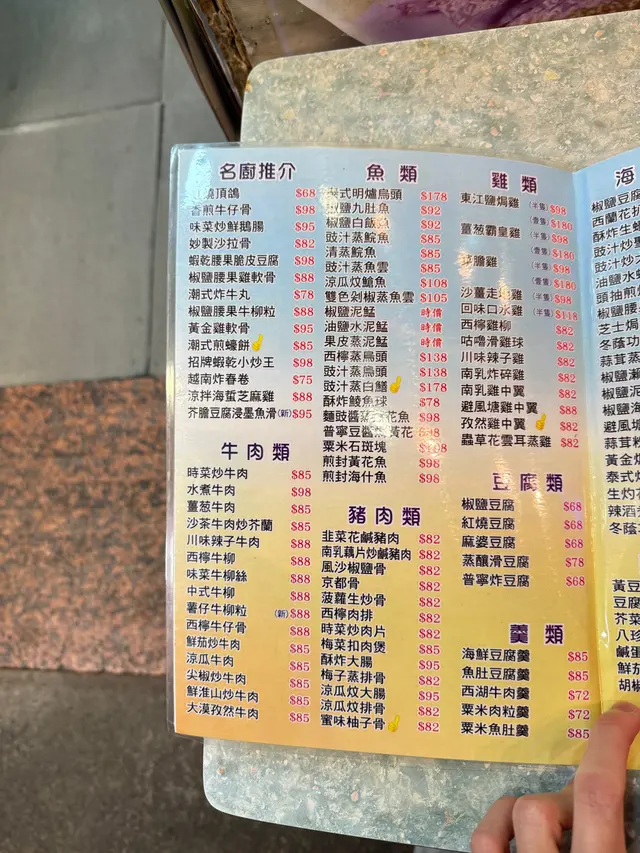 名廚推介
燒頂鴿 $68
香煎牛仔骨 $98
味菜炒鮮鵝腸 $95
妙製沙拉骨 $82
蝦乾腰果脆皮豆腐 $98
椒鹽腰果雞軟骨 $88
潮式炸牛丸 $78
椒鹽腰果牛柳粒 $88
黃金雞軟骨 $95
潮式煎蠔餅 $85
招牌蝦乾小炒王 $98
越南炸春卷 $75
涼拌海蜇芝麻雞 $88
芥膽豆腐浸墨魚滑(新)$95
牛肉類
時菜炒牛肉 $85
水煮牛肉 $98
薑葱牛肉 $85
沙茶牛肉炒芥蘭 $85
川味辣子牛肉 $88
西檸牛柳 $88
味菜牛柳絲 $88
中式牛柳 $88
薯仔牛柳粒 (新)$88
西檸牛仔骨 $88
鮮茄炒牛肉 $85
涼瓜牛肉 $85
尖椒炒牛肉 $85
鮮淮山炒牛肉 $85
大漠孜然牛肉 $85
魚類
式明爐烏頭 $178
椒鹽九肚魚 $92
椒鹽白飯魚 $92
豉汁蒸鯇魚 $85
清蒸鯇魚 $85
豉汁蒸魚雲 $85
涼瓜炆鱠魚 $108
雙色剁椒蒸魚雲 $105
椒鹽泥鯭 時價
油鹽水泥鯭 時價
果皮蒸泥鯭 時價
西檸蒸烏頭 $138
豉汁蒸烏頭 $138
豉汁蒸白鱔 $178
酥炸鯪魚球 $78
麵豉醬蒸花魚 $98
普寧豆醬黃花 $98
粟米石斑塊
煎封黃花魚 $98
煎封海什魚 $98
豬肉類
韭菜花鹹豬肉 $82
南乳藕片炒鹹豬肉 $82
風沙椒鹽骨 $82
京都骨 $82
菠蘿生炒骨 $82
西檸肉排 $82
時菜炒肉片 $82
梅菜扣肉煲 $85
酥炸大腸 $95
梅子蒸排骨 $82
涼瓜炆大腸 $95
涼瓜炆排骨 $82
蜜味柚子骨 $82
雞類
東江鹽焗雞 (半隻)$98
(壹隻)$180
薑葱霸皇雞 (半隻)$98
(壹隻)$180
膽雞 (半隻)$98
(壹隻)$180
沙薑走地雞 (半隻)$98
回味口水雞 (半隻)$118
西檸雞柳 $82
咕嚕滑雞球 $82
川味辣子雞 $82
南乳炸碎雞 $82
南乳雞中翼 $82
避風塘雞中翼 $88
孜然雞中翼 $82
蟲草花雲耳蒸雞 $82
豆腐類
椒鹽豆腐 $68
紅燒豆腐 $68
麻婆豆腐 $68
蒸釀滑豆腐 $78
普寧炸豆腐 $68
羹類
海鮮豆腐羹 $85
魚肚豆腐羹 $85
西湖牛肉羹 $72
粟米肉粒羹 $72
粟米魚肚羹 $85
海
椒鹽豆腐
西蘭花
酥炸生
豉汁炒
豉汁炒
油鹽水
頭抽煎
椒鹽腰
芝士焗
冬蔭功
蒜茸蒸
椒鹽瀨
椒鹽
避風塘
蒜茸粉
黃金
泰式
生灼
辣酒
冬蔭
黃豆
豆腐
芥菜
八珍
鹹蛋
鮮茄
胡椒